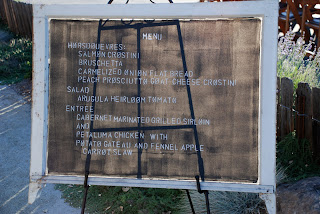 MENU
HORSDOUEVRES:
SALMON CROSTINI
BRUSCHETTA
CARMELIZED ONION FLAT BREAD
PEACH PROSCIUTTO GOAT CHEESE CROSTINI
SALAD
ARUGULA HEIRLOOM TOMATO
ENTREE
CABERNET MARINATED GRILLED SIRLOIN
AND
PETALUMA CHICKEN WITH
POTATO GATEAU AND FENNEL APPLE
CARROT SLAW